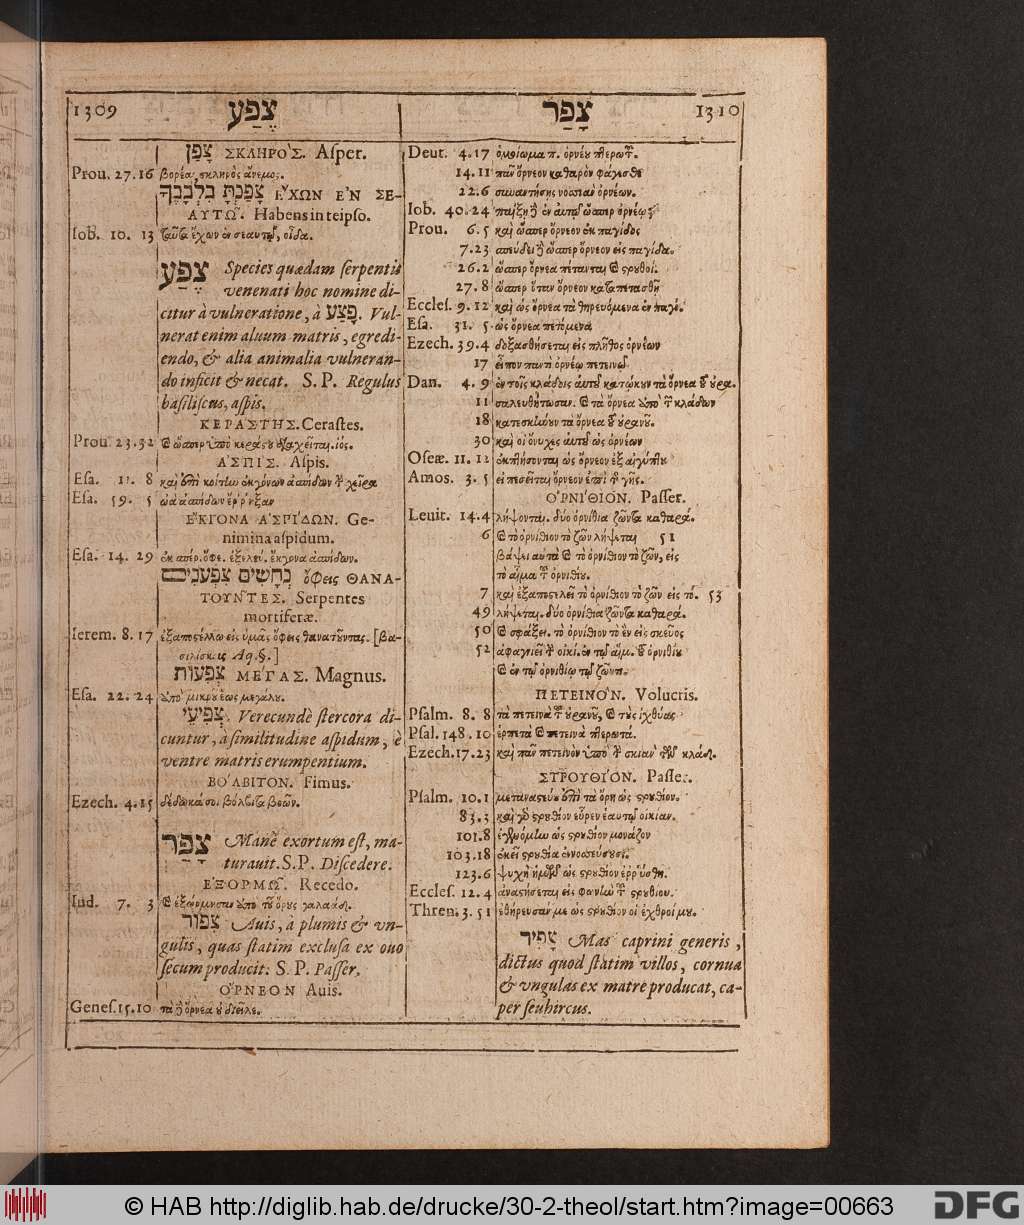 1309 צֶפַע
צָפַר 1310
צָפֹן ΣΚΛΗΡΟ'Σ. Aſper.
Prou. 27.16 βορέας σκληρὸς ἄνεμος.
צָפַנְתָּ בִלְבָבֶךָ Ε῎ΧΩΝ Ε'Ν ΣΕ-
ΑΥΤΩ͂. Habens in teipſo.
Iob. 10. 13 ταῦτα ἔχων ἐν σεαυτῷ, οἶδα.
צֶפַע Species quædam ſerpentis
venenati hoc nomine di-
citur à vulneratione, à פָצַע. Vul-
nerat enim aluum matris, egredi-
endo, & alia animalia vulneran-
do inficit & necat. S. P. Regulus
baſiliſcus, aſpis.
ΚΕΡΑΣΤΗΣ. Ceraſtes.
Prou 23.32 & ὥσπερ ὑπὸ κεράστου διαχεῖται. ἰός.
Α'ΣΠΙΣ. Aſpis.
Eſa. 11. 8 καὶ ἐπὶ κοίτην ἐκγόνων ἀσπίδων τὴν χεῖρα
Eſa. 59. 5 ὠὰ ἀσπίδων ἔρρηξαν
Ε῎ΚΓΟΝΑ Α'ΣΠΙ'ΔΩΝ. Ge-
nimina aſpidum.
Eſa. 14. 29 ἐκ σπέρ. ὄφε. ἐξελεύ. ἔκγονα ἀσπίδων.
נְחָשִׁים צִפְעֹנִים ὄφεις ΘΑΝΑ-
ΤΟΥ͂ΝΤΕΣ. Serpentes
mortiferæ.
Ierem. 8. 17 ἐξαποστέλλω εἰς ὑμᾶς ὄφεις θανατοῦντας. [βα-
σιλίσκους Aq. §.]
צְפֻעוֹת ΜΕ'ΓΑΣ. Magnus.
Eſa. 22. 24 ἀπὸ μικροῦ ἕως μεγάλου.
צְפִיעֵי. Verecundè ſtercora di-
cuntur, à ſimilitudine aſpidum, è
ventre matris erumpentium.
ΒΟ'ΛΒΙΤΟΝ. Fimus.
Ezech. 4.15 δέδωκά σοι βόλβιτα βοῶν.
צָפַר Manè exortum eſt, ma-
turauit. S. P. Diſcedere.
Ε'ΞΟΡΜΩ͂. Recedo.
Iud. 7. 3 & ἐξώρμησαν ἀπὸ τοῦ ὄρους γαλαάδ.
צִפּוֹר Auis, à plumis & vn-
gulis, quas ſtatim excluſa ex ouo
ſecum producit. S. P. Paſſer.
Ο῎ΡΝΕΟΝ Auis.
Geneſ. 15. 10 τὰ δὲ ὄρνεα οὐ διεῖλε.
Deut. 4. 17 ὁμοίωμα π. ὀρνέου πτερωτοῦ.
14. 11 πᾶν ὄρνεον καθαρὸν φάγεσθε
22.6 συναντήσῃς νοσσιᾷ ὀρνέων.
Iob. 40. 24 παίξῃ δὲ ἐν αὐτῷ ὥσπερ ὀρνέῳ;
Prou. 6. 5 καὶ ὥσπερ ὄρνεον ἐκ παγίδος
7.23 σπεύδει δὲ ὥσπερ ὄρνεον εἰς παγίδα.
26.2 ὥσπερ ὄρνεα πέτανται & στρουθοί.
27. 8 ὥσπερ ὅταν ὄρνεον καταπετασθῇ
Eccleſ. 9. 12 καὶ ὡς ὄρνεα τὰ θηρευόμενα ἐν παγί.
Eſa. 31. 5 ὡς ὄρνεα πετόμενα
Ezech. 39.4 δοξασθήσεται εἰς πλῆθος ὀρνέων
17 εἶπον παντὶ ὀρνέῳ πετεινῷ
Dan. 4. 9 ἐν τοῖς κλάδοις αὐτοῦ κατῴκουν τὰ ὄρνεα τοῦ οὐρα.
11 σαλευθήτωσαν. & τὰ ὄρνεα ἀπὸ τῶν κλάδων
18 κατεσκήνουν τὰ ὄρνεα τοῦ οὐρανοῦ.
30 καὶ οἱ ὄνυχες αὐτοῦ ὡς ὀρνέων
Oſeæ. 11. 12 ἐκπτήσονται ὡς ὄρνεον ἐξ αἰγύπτου
Amos. 3. 5 εἰ πεσεῖται ὄρνεον ἐπὶ τὴν γῆς.
Ο'ΡΝΙ'ΘΙΟΝ. Paſſer.
Leuit. 14. 4 λήψονται. δύο ὀρνίθια ζῶντα καθαρά.
6 & τὸ ὀρνίθιον τὸ ζῶν λήψεται 51
βάψει αὐτὰ & τὸ ὀρνίθιον τὸ ζῶν, εἰς
τὸ αἷμα τοῦ ὀρνιθίου.
7 καὶ ἐξαποστελεῖ τὸ ὀρνίθιον τὸ ζῶν εἰς τό. 53
49 λήψεται. δύο ὀρνίθια ζῶντα καθαρά.
50 & σφάξει. τὸ ὀρνίθιον τὸ ἓν εἰς σκεῦος
52 ἀφαγνιεῖ τὴν οἰκί. ἐν τῷ αἵμ. τοῦ ὀρνιθίου
& ἐν τῷ ὀρνιθίῳ τῷ ζῶντι.
ΠΕΤΕΙΝΟ'Ν. Volucris.
Pſalm. 8. 8 τὰ πετεινὰ τοῦ οὐρανοῦ, & τοὺς ἰχθύας
Pſal. 148. 10 ἑρπετὰ & πετεινὰ πτερωτά.
Ezech. 17. 23 καὶ πᾶν πετεινὸν ὑπὸ τὴν σκιὰν τῶν κλάδ.
ΣΤΡΟΥΘΙ'ΟΝ. Paſſer.
Pſalm. 10. 1 μεταναστεύου ἐπὶ τὰ ὄρη ὡς στρουθίον.
83. 3 καὶ γὰρ στρουθίον εὗρεν ἑαυτῷ οἰκίαν.
101. 8 ἐγενόμην ὡς στρουθίον μονάζον
103. 18 ἐκεῖ στρουθία ἐννοσσεύσουσι.
123. 6 ψυχὴ ἡμῶν ὡς στρουθίον ἐρρύσθη.
Eccleſ. 12. 4 ἀναστήσεται εἰς φωνὴν τοῦ στρουθίου.
Thren. 3. 51 ἐθήρευσάν με ὡς στρουθίον οἱ ἐχθροί μου.
צָפִיר Mas caprini generis,
dictus quod ſtatim villos, cornua
& vngulas ex matre producat, ca-
per ſeu hircus.
© HAB http://diglib.hab.de/drucke/30-2-theol/start.htm?image=00663
DFG